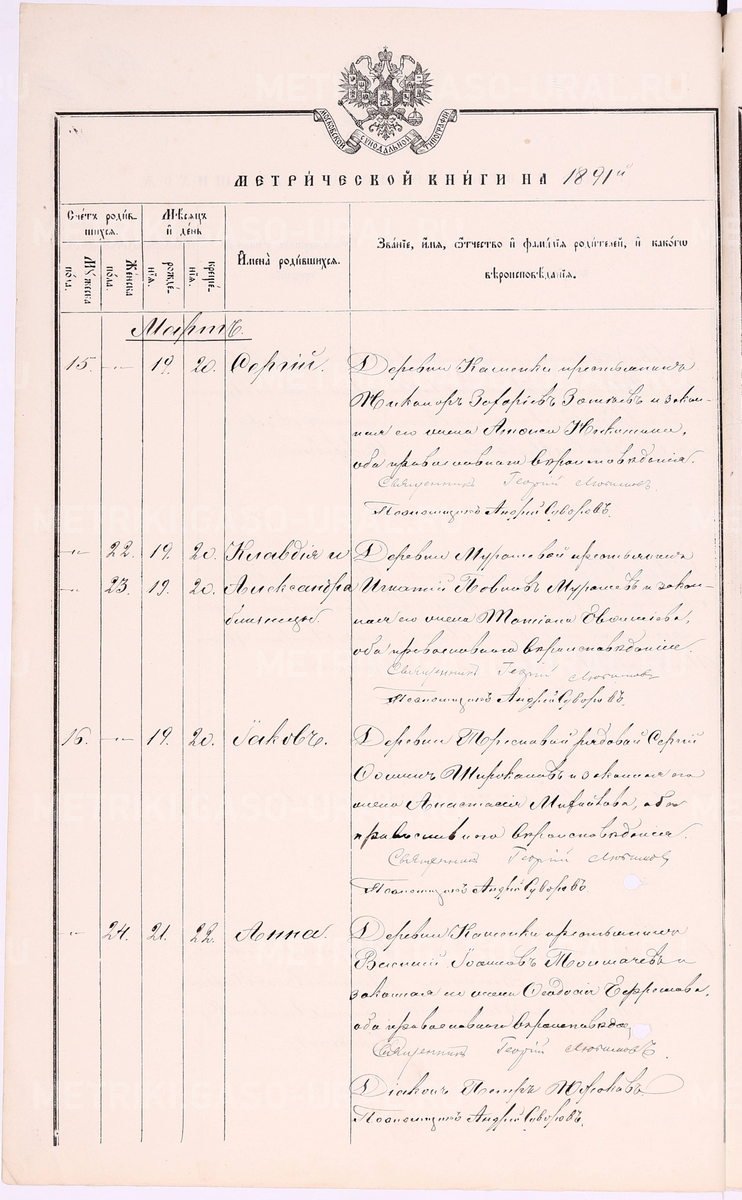 МОСКОВСКОЙ СѴНОДАЛЬНОЙ ТИПОГРАФІИ
МЕТРИ́ЧЕСКОЙ КНИ́ГИ НА 1891й
Сче́тъ роди́вшихся.
Му́жеска по́ла.
Же́нска по́ла.
Мѣ́сяцъ и де́нь
рожде́нїѧ.
креще́нїѧ.
И҆мена̀ роди́вшихся.
Зва́нїе, и҆́мѧ, ѻ҆́тчество и҆ фамі́лїѧ роди́телей, и҆ како́гѡ
вѣроисповѣ́данїѧ.
Мартъ.
15. -"- 19. 20. Сергій. Деревни Каменки крестьянинъ
Никаноръ Захаріевъ и закон-
ная его жена Анисія
оба православнаго вѣроисповѣданія.
Священникъ Георгій Любимовъ
Псаломщикъ Андрей Суворовъ.
-"- 22. 19. 20. Клавдія и Деревни Мурашевой крестьянинъ
-"- 23. 19. 20. Александра Игнатій Мурашевъ и закон-
близнецы. ная его жена Татіана
оба православнаго вѣроисповѣданія.
Священникъ Георгій Любимовъ
Псаломщикъ Андрей Суворовъ.
16. -"- 19. 20. Іаковъ. Деревни рядовой Сергій
и законная его
жена Анастасія оба
православнаго вѣроисповѣданія.
Священникъ Георгій Любимовъ
Псаломщикъ Андрей Суворовъ.
-"- 24. 21. 22. Анна. Деревни Каменки крестьянинъ
Василій Іоанновъ Толмачевъ и
законная его жена Ѳеодосія
оба православнаго
Священникъ Георгій Любимовъ.
Діаконъ Петръ
Псаломщикъ Андрей Суворовъ.